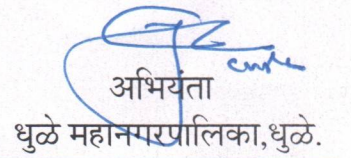 अभियंता
धुळे महानगरपालिका,धुळे.